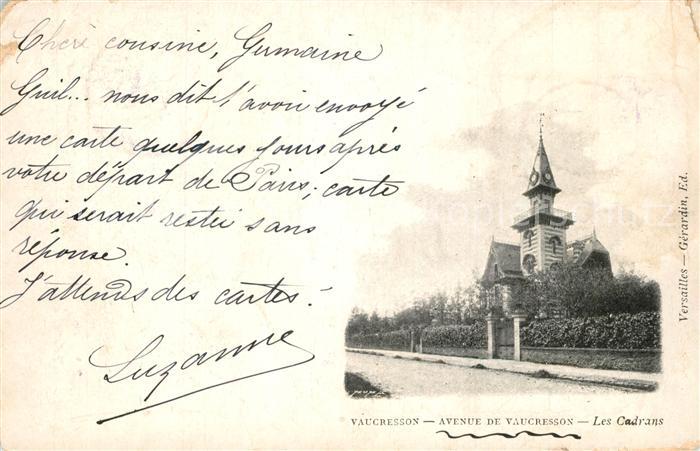 Chère cousine, Germaine
Guil... nous dit t'avoir envoyé
une carte quelques jours après
votre départ de Paris; carte
qui serait restée sans
réponse.
J'attends des cartes.
Suzanne
VAUCRESSON — AVENUE DE VAUCRESSON — Les Cadrans
Versailles — Gérardin, Ed.